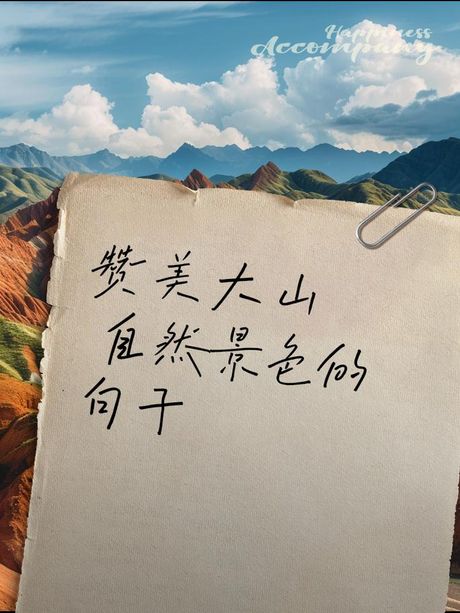 Happiness
Accompany
赞美大山
自然景色的
句子